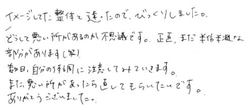 イメージしてた整体と違ったので、びっくりしました。
どうして悪い所があるのか不思議です。正直、まだ半信半疑な
部分があります(笑)
数日、自分の体調に注意してみていきます。
また悪い所があったら直してもらいたいです。
ありがとうございました。